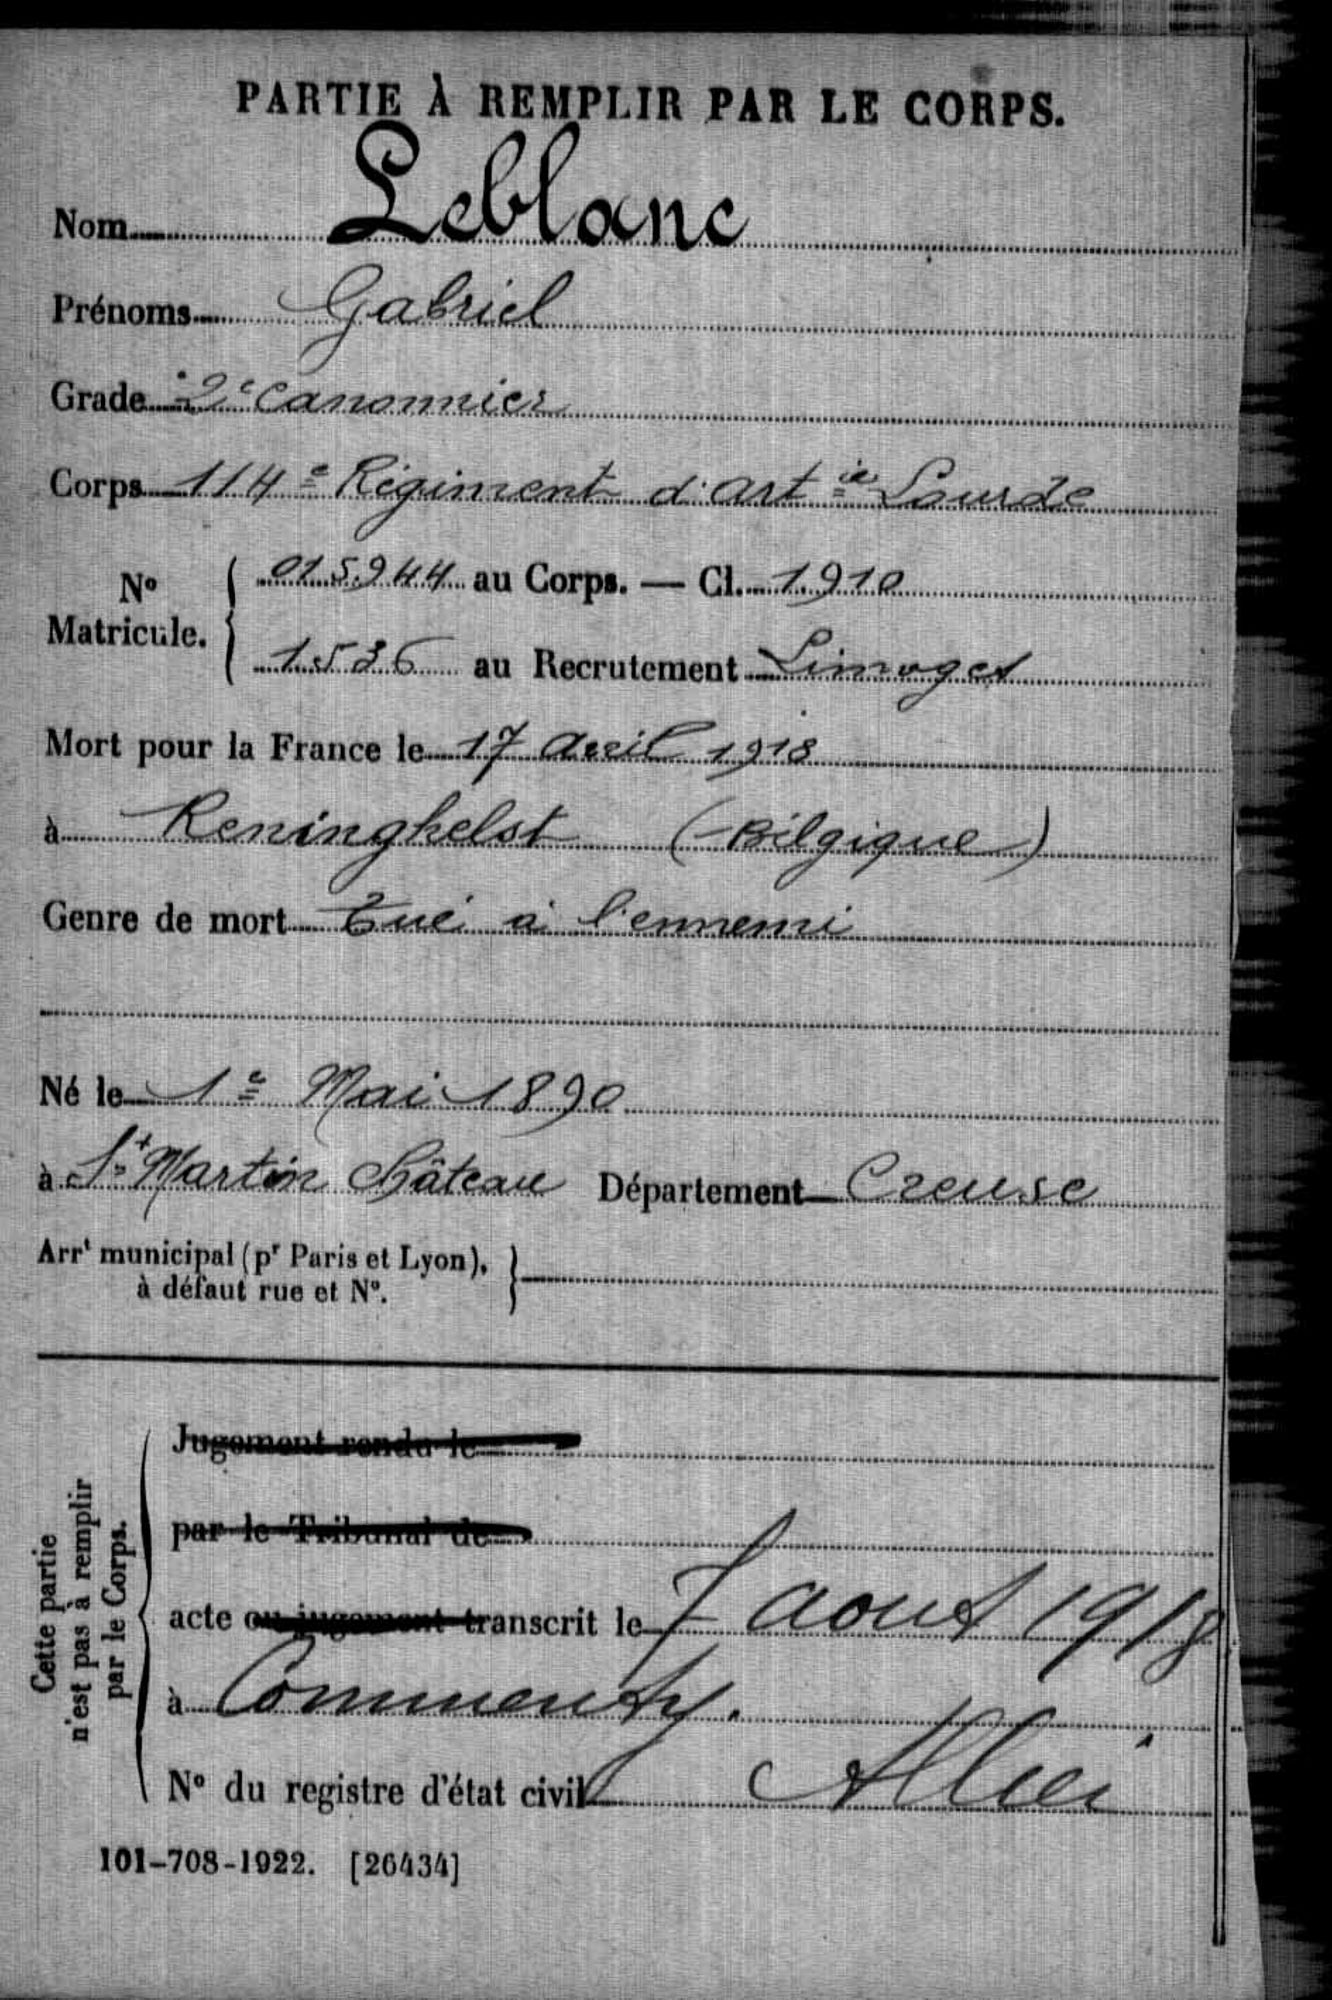 PARTIE À REMPLIR PAR LE CORPS.
Nom Leblanc
Prénoms Gabriel
Grade 2e canonnier
Corps 114e Régiment d'artie Lourde
No Matricule. { 015944 au Corps. — Cl. 1910
1536 au Recrutement Limoges
Mort pour la France le 17 avril 1918
à Reninghelst (Belgique)
Genre de mort Tué à l'ennemi
Né le 1e Mai 1890
à St Martin Château Département Creuse
Arrt municipal (pr Paris et Lyon), à défaut rue et No. }
Cette partie n'est pas à remplir par le Corps.
Jugement rendu le
par le Tribunal de
acte ou jugement transcrit le 7 aout 1918
à Commentry.
No du registre d'état civil Allier
101-708-1922. [26434]